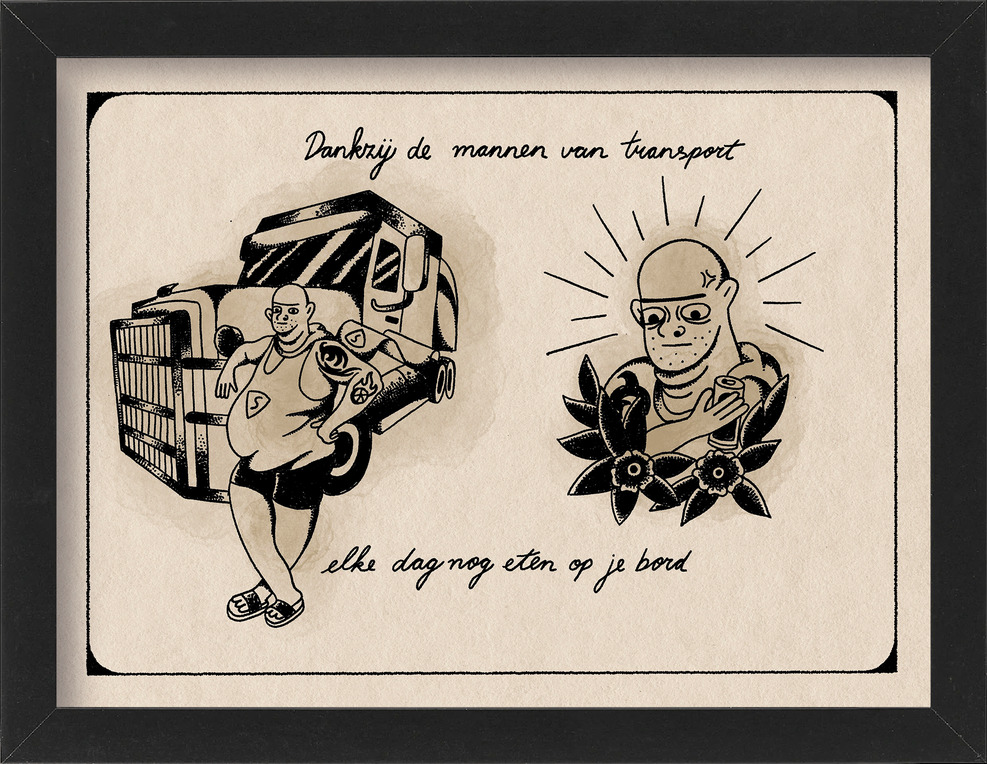 Dankzij de mannen van transport
S
S
elke dag nog eten op je bord